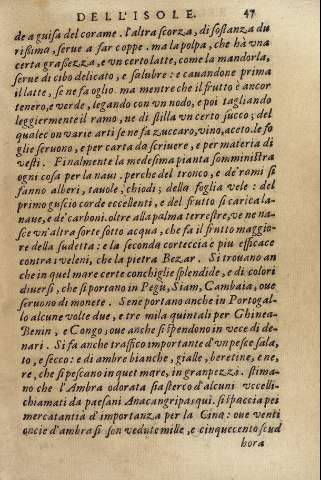 DELL'ISOLE. 47
de a guisa del corame. l'altra scorza, di sostanza du
rissima, serue a far coppe. ma la polpa, che hà vna
certa grassezza, e vn certo latte, come la mandorla,
serue di cibo delicato, e salubre: e cauandone prima
il latte, se ne fa oglio. ma mentre che il frutto è ancor
tenero, e verde, legando con vn nodo, e poi tagliando
leggiermente il ramo, ne di stilla vn certo succo; del
qual con varie arti se ne fa zuccaro, vino, aceto. le fo
glie seruono, e per carta da scriuere, e per materia di
vesti. Finalmente la medesima pianta somministra
ogni cosa per la naui. perche del tronco, e de' rami si
fanno alberi, tauole, chiodi; della foglia vele: del
primo guscio corde eccellenti, e del frutto si carica la
naue, e de' carboni. oltre alla palma terrestre, ve ne na-
sce vn'altra sorte sotto acqua, che fa il frutto maggio-
re della sudetta: e la seconda corteccia è piu efficace
contra i veleni, che la pietra Bezar. Si trouano an
che in quel mare certe conchiglie splendide, e di colori
diuersi, che si portano in Pegù, Siam, Cambaia; oue
seruono di monete. Se ne portano anche in Portogal-
lo alcune volte due, e tre mila quintali per Ghinea
Benin, e Congo; oue anche si spendono in vece di de-
nari. Si fa anche traffico importante d'vn pesce sala,
to, e secco: e di ambre bianche, gialle, berettine, e ne,
re, che si pescano in quel mare, in gran pezza. stima-
no che l'Ambra odorata sia sterco d'alcuni vccelli
chiamati da paesani Anacangripasqui. si spaccia pei
mercatantià d'importanza per la Cina: oue venti
oncie d'ambra si son vedute mille, e cinquecento scud
hora